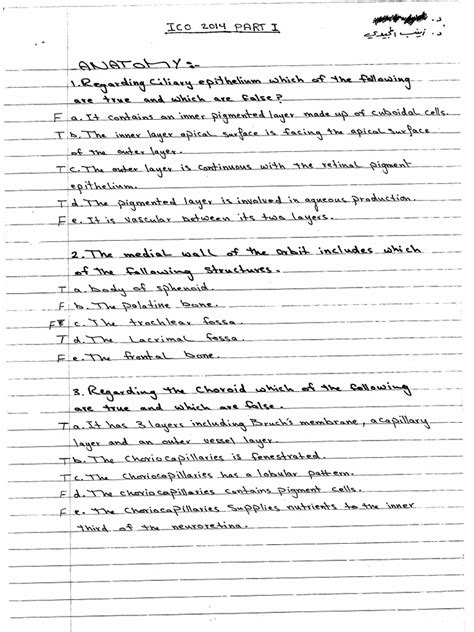 ICO 2014 PART I
د.
د. زينب
ANATOMY:-
1. Regarding Ciliary epithelium which of the following
are true and which are false?
F a. It contains an inner pigmented layer made up of cuboidal cells.
T b. The inner layer apical surface is facing the apical surface
of the outer layer.
T c. The outer layer is continuous with the retinal pigment
epithelium.
T d. The pigmented layer is involved in aqueous production.
F e. It is vascular between its two layers.
2. The medial wall of the orbit includes which
of the following structures.
T a. body of sphenoid.
F b. The palatine bone.
F c. The trochlear fossa.
T d. The Lacrimal fossa.
F e. The frontal bone.
3. Regarding the Choroid which of the following
are true and which are false.
T a. It has 3 layers including Bruch's membrane, a capillary
layer and an outer vessel layer.
T b. The Choriocapillaries is fenestrated.
T c. The Choriocapillaries has a lobular pattern.
F d. The choriocapillaries contains pigment cells.
F e. The choriocapillaries Supplies nutrients to the inner
third of the neuroretina.